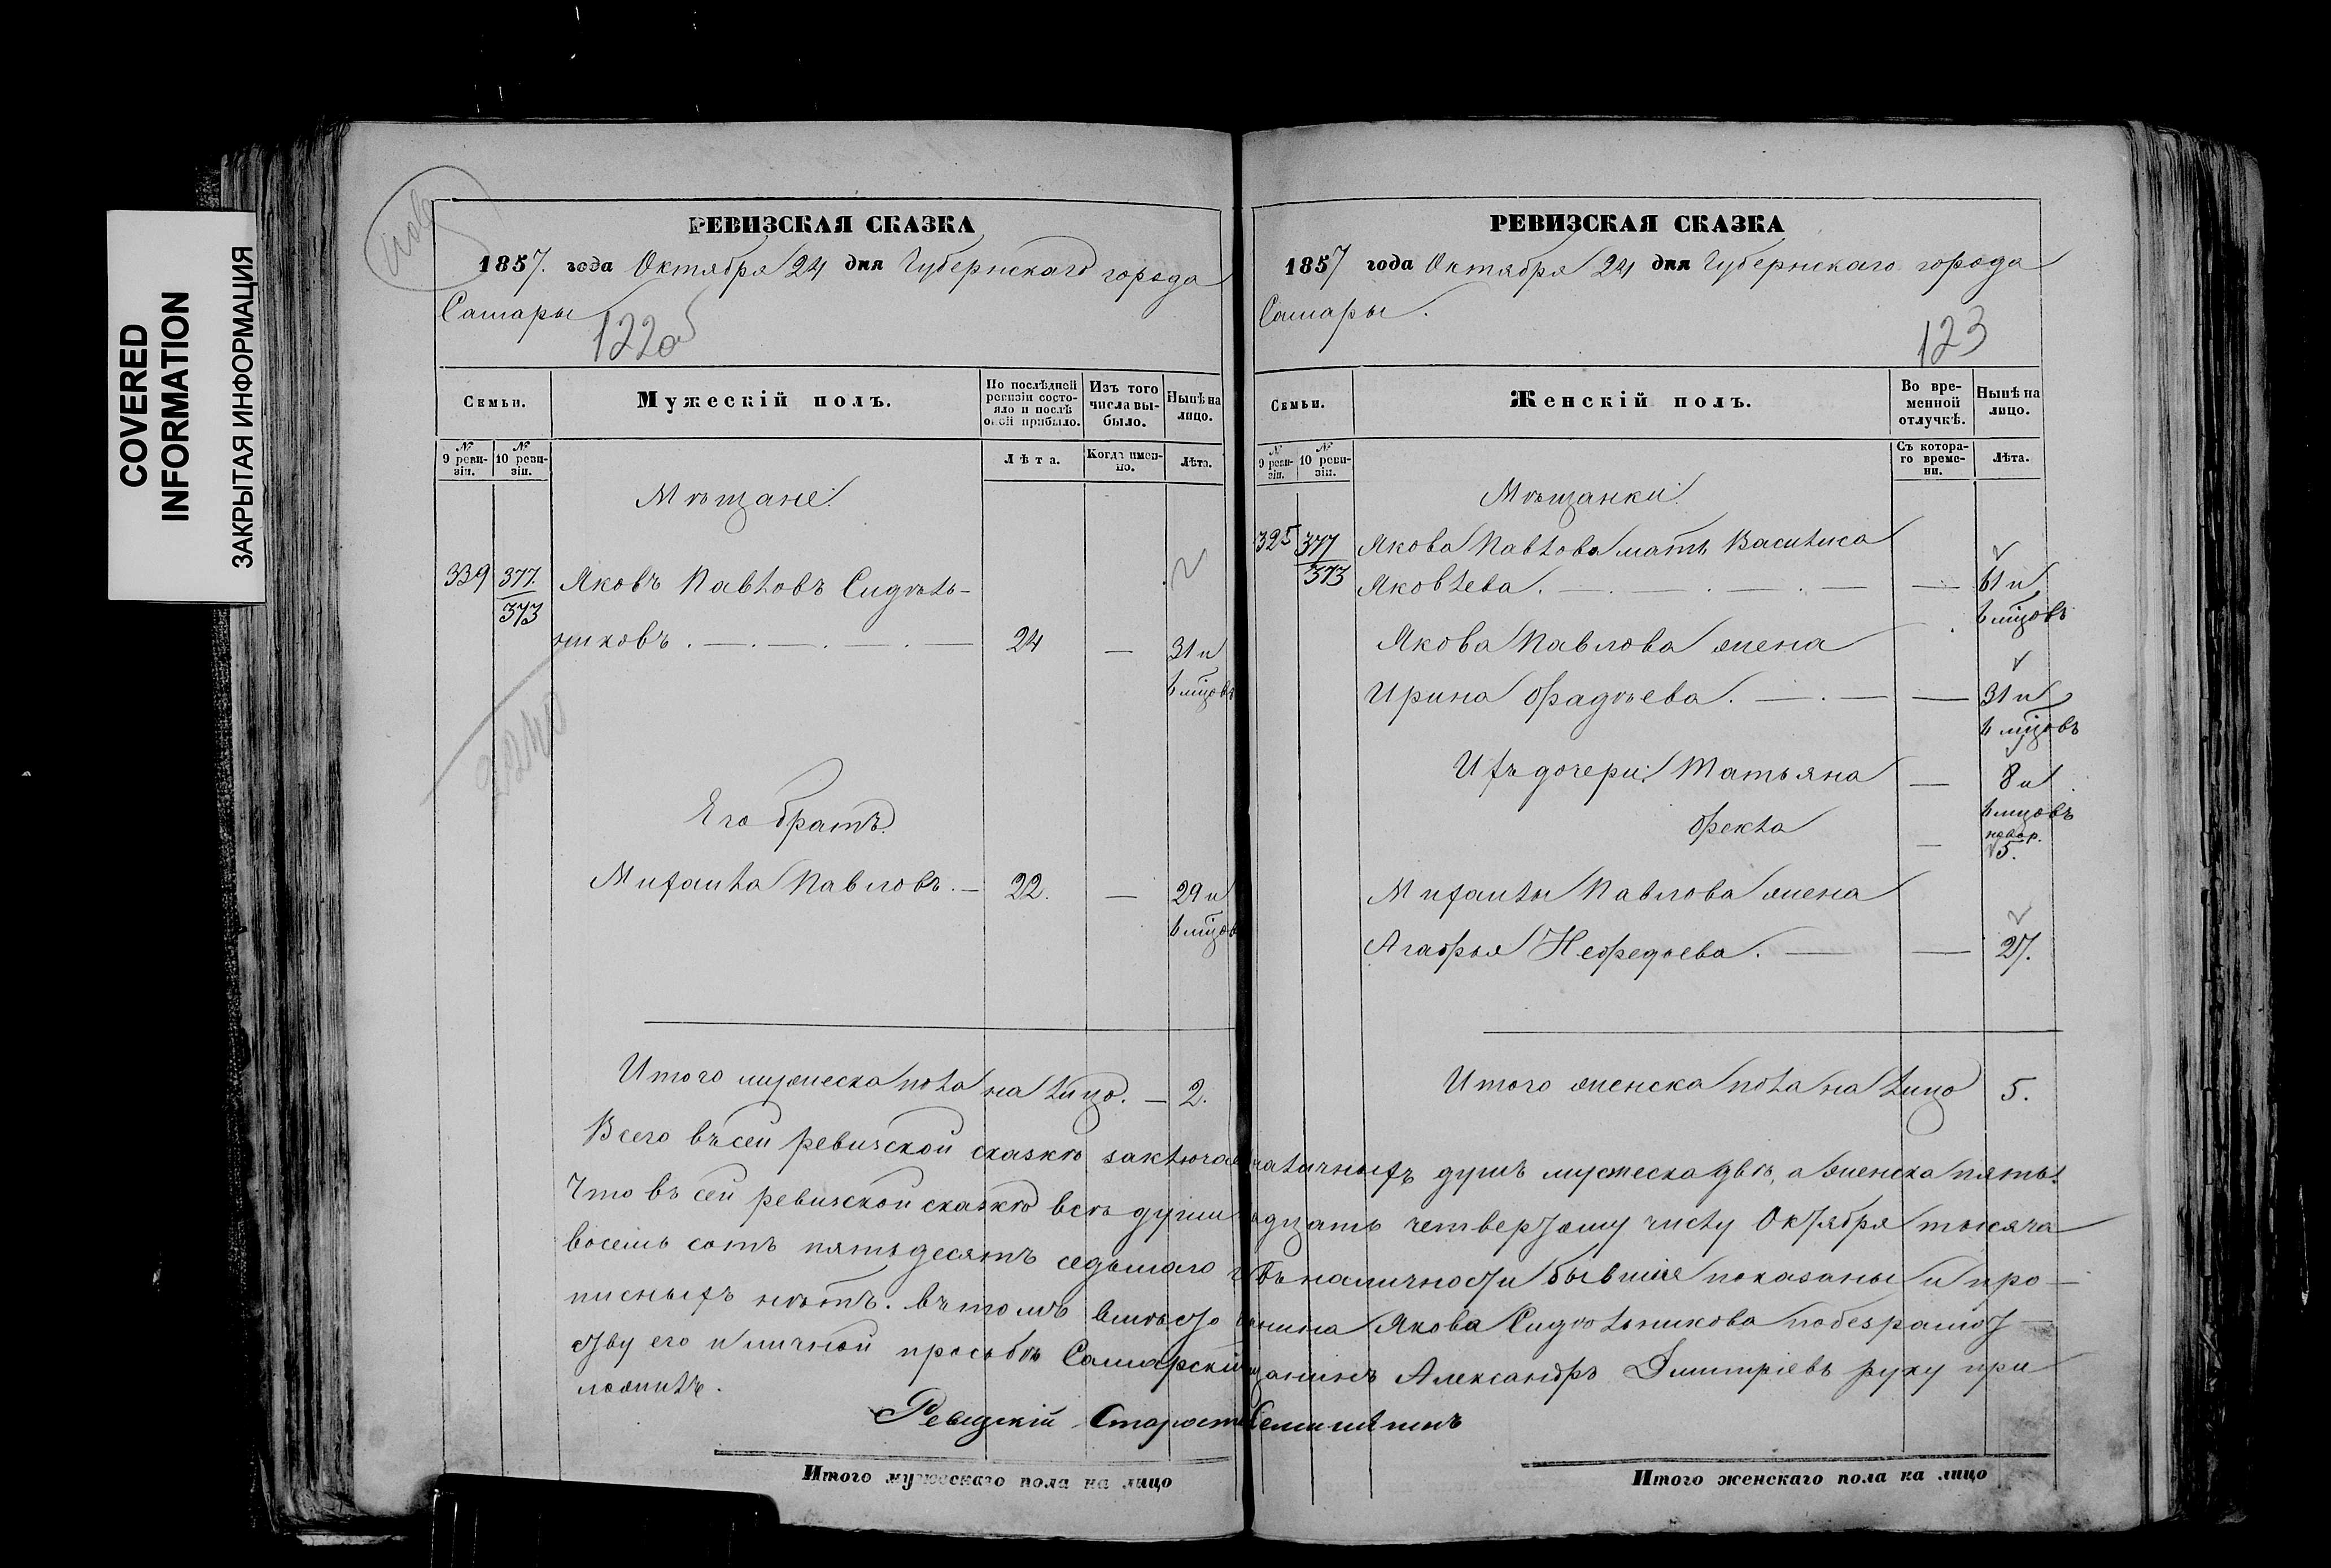 COVERED
INFORMATION
ЗАКРЫТАЯ ИНФОРМАЦИЯ
РЕВИЗСКАЯ СКАЗКА
1857. года Октября 24 дня Губернскаго города
Самары
122об
Семьи.
Мужескій полъ.
По послѣдней ревизіи состояло и послѣ оной прибыло.
Изъ того числа выбыло.
Нынѣ на лицо.
№ 9 ревизіи.
№ 10 ревизіи.
Лѣта.
Когда именно.
Лѣта.
Мѣщане:
339 377. Яковъ Павловъ Сидѣль-
373
никовъ . — . — . — . — 24 — 31 и
6 мцовъ
2240
Его братъ.
Михаила Павловъ. — 22. — 29 и
6 мцов
Итого мужеска пола на лицо. — 2.
РЕВИЗСКАЯ СКАЗКА
1857 года Октября 24 дня Губернскаго города
Самары.
123
Семьи.
Женскій полъ.
Во временной отлучкѣ.
Нынѣ на лицо.
№ 9 ревизіи.
№ 10 ревизіи.
Съ котораго времени.
Лѣта.
Мѣщанки:
325 377 Якова Павлова мать Василиса
373 Яковлева. — . — . — . — — 61 и
6 мцовъ
Якова Павлова жена
Ирина Фадѣева. — . — — 31 и
6 мцовъ
Ихъ дочери: Татьяна — 8 и
6 мцовъ
Фекла — новор.
5.
Михаилы Павлова жена
Агафья Нефедьева. — — 27.
Итого женска пола на лицо 5.
Всего въ сей ревизской сказкѣ заключае наличныхъ душъ мужеска двѣ, а женска пять.
Что въ сей ревизской сказкѣ всѣ души адцать четвертому числу Октября тысяча
восемь сотъ пятьдесятъ седьмаго г въ наличности бывшіе показаны и про-
писныхъ нѣтъ. въ томъ вмѣсто анина Якова Сидѣльникова по безграмот-
ству его и личной просьбѣ Самарскій щанинъ Александръ Дмитріевъ руку при
ложилъ.
Ревизскій Старост
Итого мужескаго пола на лицо
Итого женскаго пола на лицо